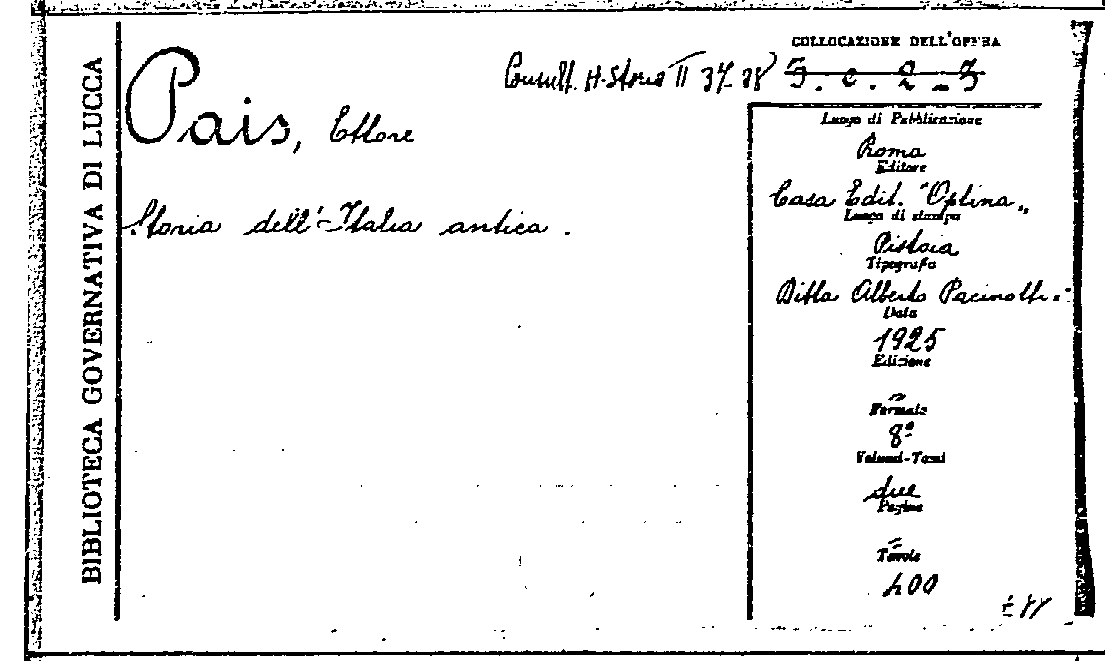 BIBLIOTECA GOVERNATIVA DI LUCCA
COLLOCAZIONE DELL'OPERA
Consult. H. Storia II 37-38
5. c. 2 - 3
Pais, Ettore
Storia dell'Italia antica.
Luogo di Pubblicazione
Roma
Editore
Casa Edit. "Optima„
Luogo di stampa
Pistoia
Tipografia
Ditta Alberto Pacinotti
Data
1925
Edizione
Formato
8º
Volumi-Tomi
due
Pagine
Tavole
400